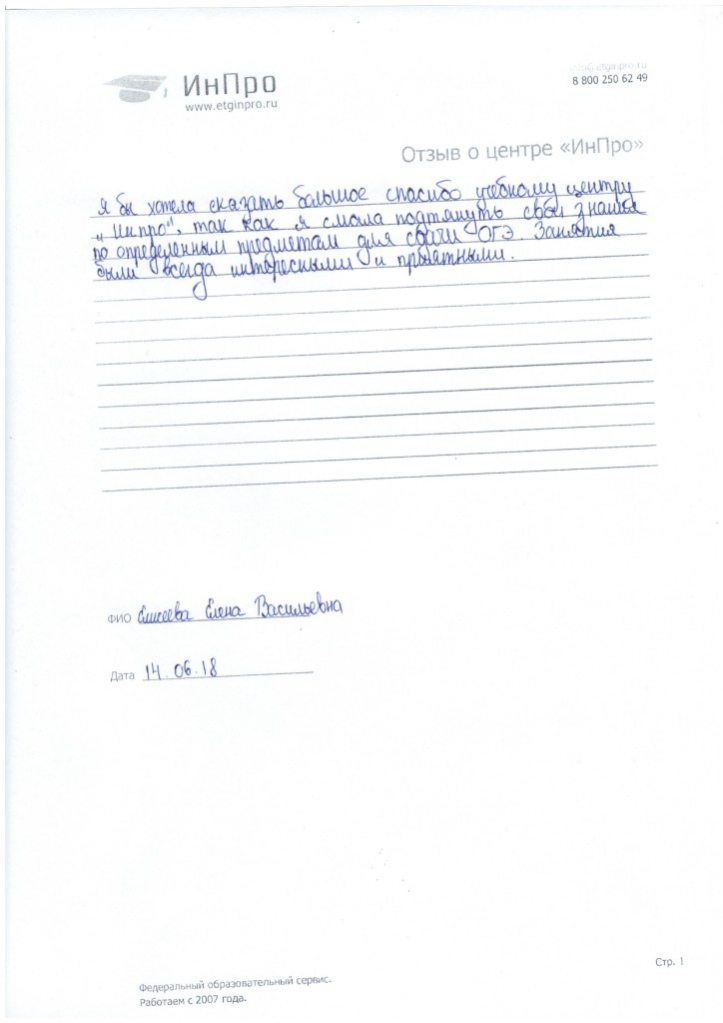 ИнПро
www.etginpro.ru
info@etginpro.ru
8 800 250 62 49
Отзыв о центре «ИнПро»
Я бы хотела сказать большое спасибо учебному центру
„Инпро", так как я смогла подтянуть свои знания
по определенным предметам для сдачи ОГЭ. Занятия
были всегда интересными и приятными.
ФИО Елисеева Елена Васильевна
Дата 14.06.18
Стр. 1
Федеральный образовательный сервис.
Работаем с 2007 года.